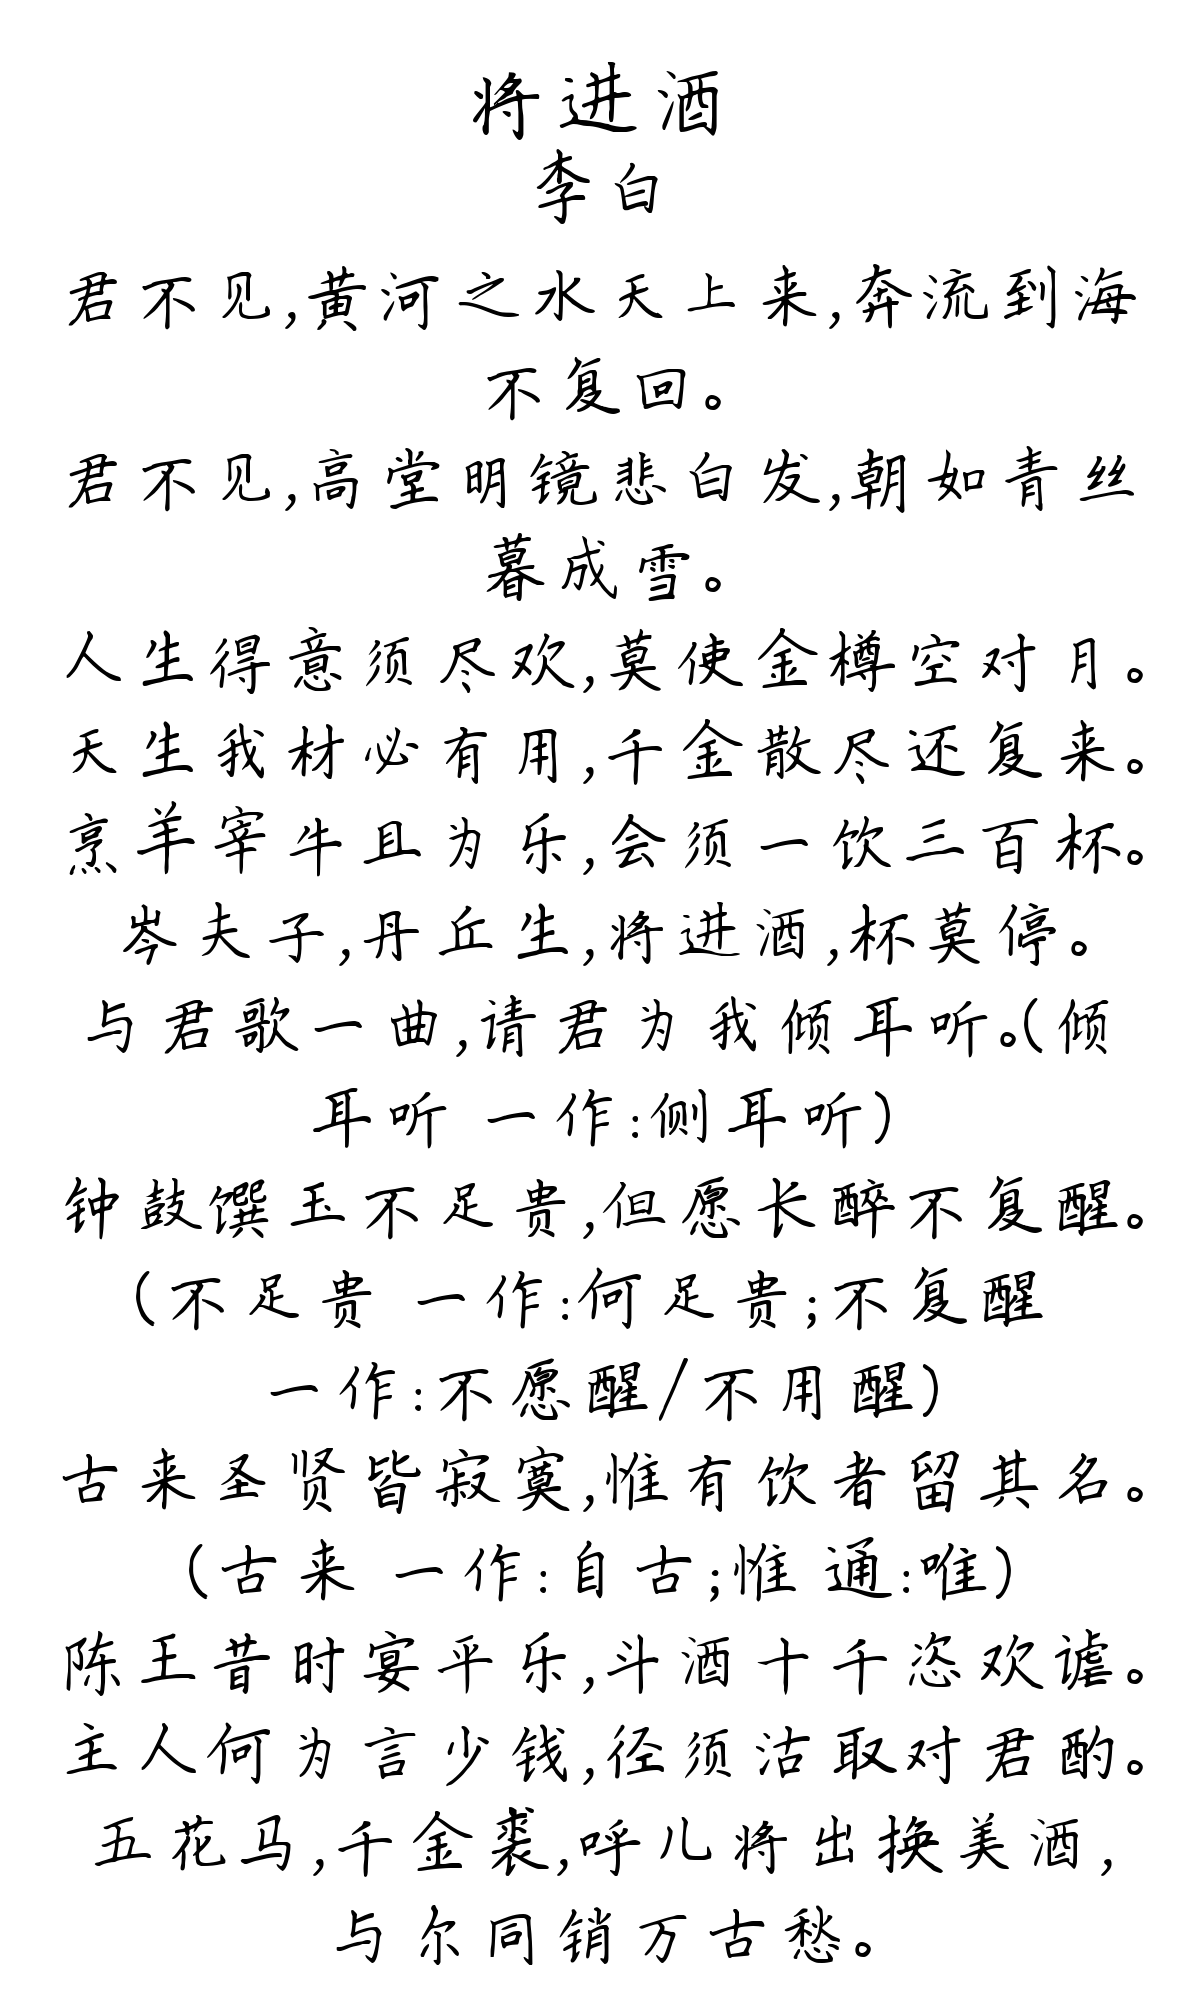 将进酒
李白
君不见,黄河之水天上来,奔流到海
不复回。
君不见,高堂明镜悲白发,朝如青丝
暮成雪。
人生得意须尽欢,莫使金樽空对月。
天生我材必有用,千金散尽还复来。
烹羊宰牛且为乐,会须一饮三百杯。
岑夫子,丹丘生,将进酒,杯莫停。
与君歌一曲,请君为我倾耳听。(倾
耳听 一作:侧耳听)
钟鼓馔玉不足贵,但愿长醉不复醒。
(不足贵 一作:何足贵;不复醒
一作:不愿醒/不用醒)
古来圣贤皆寂寞,惟有饮者留其名。
(古来 一作:自古;惟 通:唯)
陈王昔时宴平乐,斗酒十千恣欢谑。
主人何为言少钱,径须沽取对君酌。
五花马,千金裘,呼儿将出换美酒,
与尔同销万古愁。